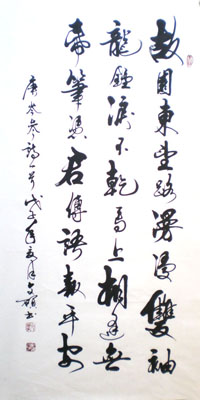 故園東望路漫漫雙袖
龍鍾淚不乾馬上相逢無
帋筆憑君傳語報平安
唐岑參詩一首戊子年夏月書